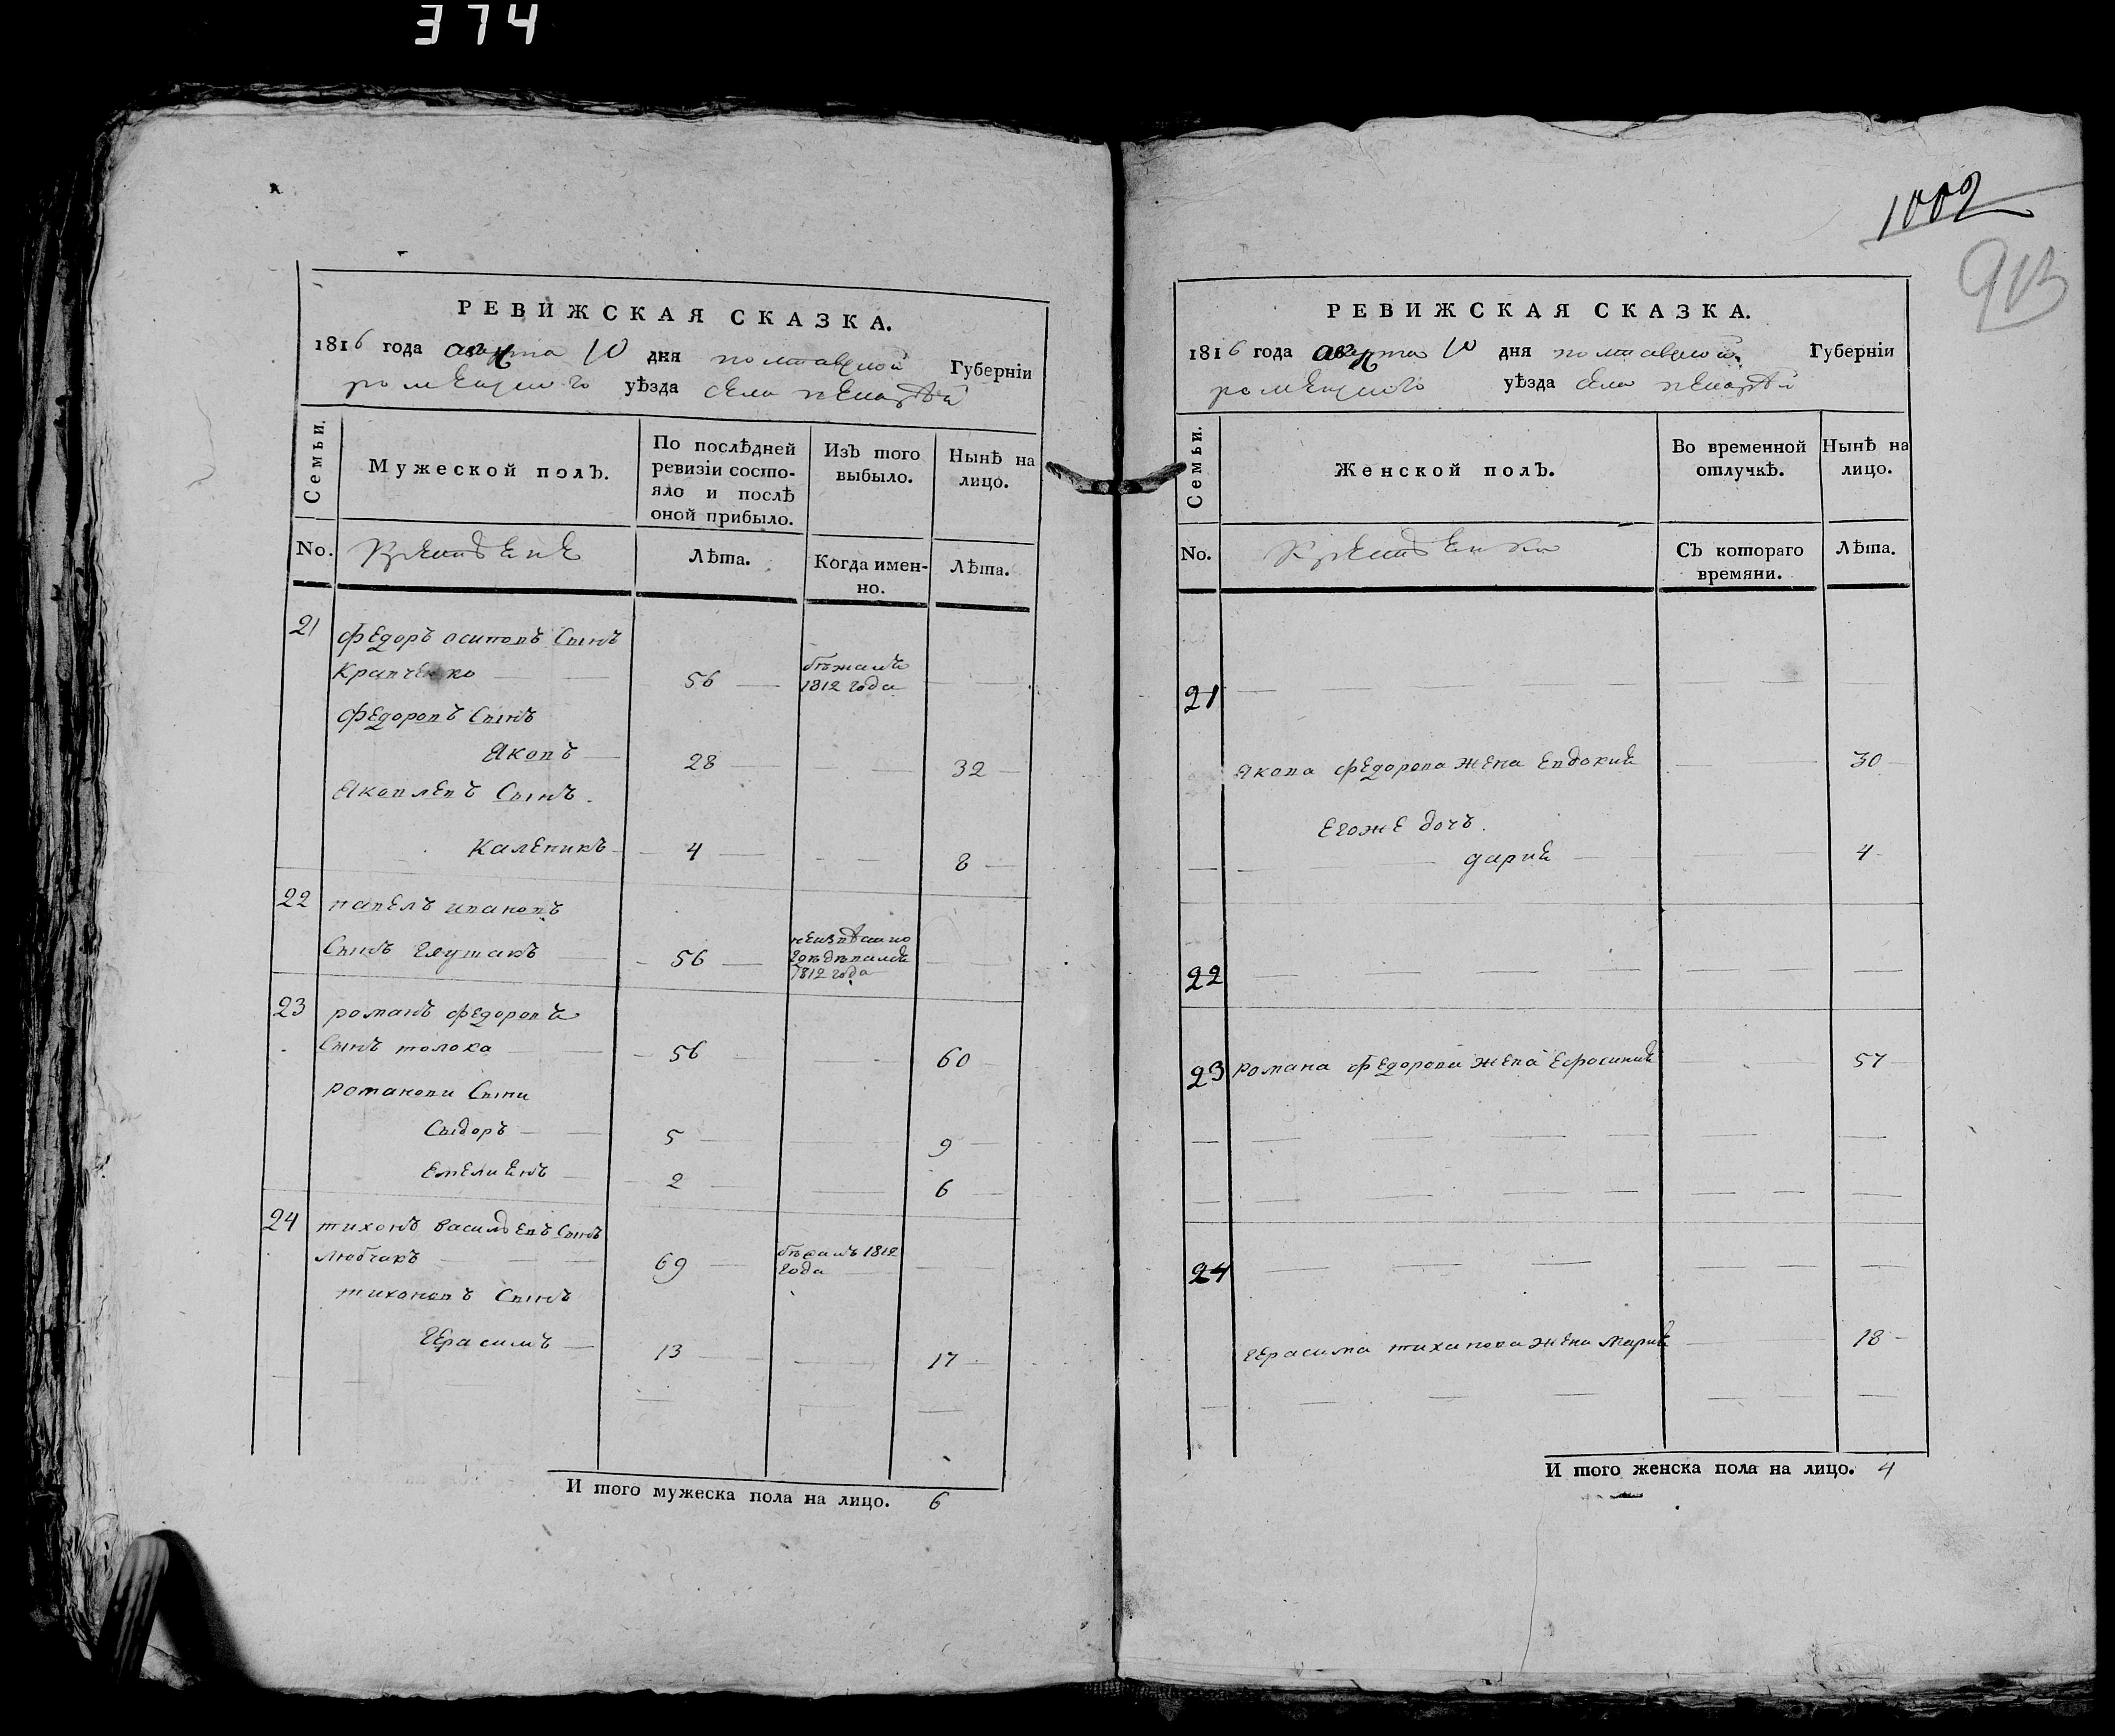 374
РЕВИЖСКАЯ СКАЗКА.
1816 года марта 10 дня полтавской Губерніи
роменского уѣзда села
Семьи.
Мужеской полъ.
По послѣдней ревизіи состо-
яло и послѣ оной прибыло.
Изъ того выбыло.
Нынѣ на лицо.
No.
Крестьяне
Лѣта.
Когда имен-
но.
Лѣта.
21 федоръ осиповъ Сынъ
Крапченко 56 бѣжалъ 1812 года
федоровъ Сынъ
Яковъ 28 32
Яковлевъ Сынъ
Каленикъ 4 8
22 павелъ ивановъ
Сынъ 56 неизвѣстно гдѣ дѣвался 1812 года
23 романъ федоровъ
Сынъ толока 56 60
романови Сыни
Сыдоръ 5 9
Емелиянъ 2 6
24 тихонъ васильевъ Сынъ
любчакъ 69 бѣжалъ 1812 года
тихоновъ Сынъ
Герасимъ 13 17
И того мужеска пола на лицо. 6
1002
913
РЕВИЖСКАЯ СКАЗКА.
1816 года марта 10 дня полтавской Губерніи
роменского уѣзда села
Семьи.
Женской полъ.
Во временной отлучкѣ.
Нынѣ на лицо.
No.
Крестьянки
Съ котораго времяни.
Лѣта.
21
Якова федорова жена Евдокия 30
Егоже дочь
дария 4
22
23 Романа федорова жена Ефросиния 57
24
Герасима тиханова жена Мария 18
И того женска пола на лицо. 4